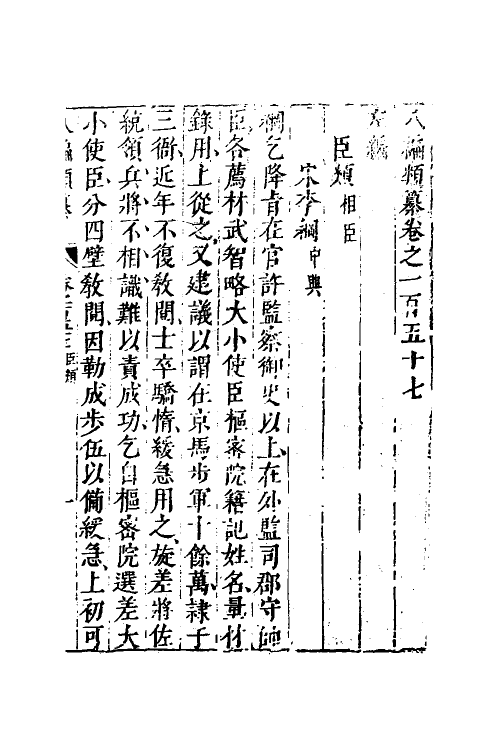 八編類纂卷之一百五十七
左編
臣類相臣
宋李綱中興
綱乞降旨在官許監察御史以上在外監司郡守帥
臣各薦材武智略大小使臣樞密院籍記姓名量材
錄用上從之又建議以謂在京馬步軍十餘萬隸于
三衙近年不復教閱士卒驕惰緩急用之旋差將佐
統領兵將不相識難以責成功乞自樞密院選差大
小使臣分四壁教閱因勒成步伍以備緩急上初可
八編類纂 臣類 一